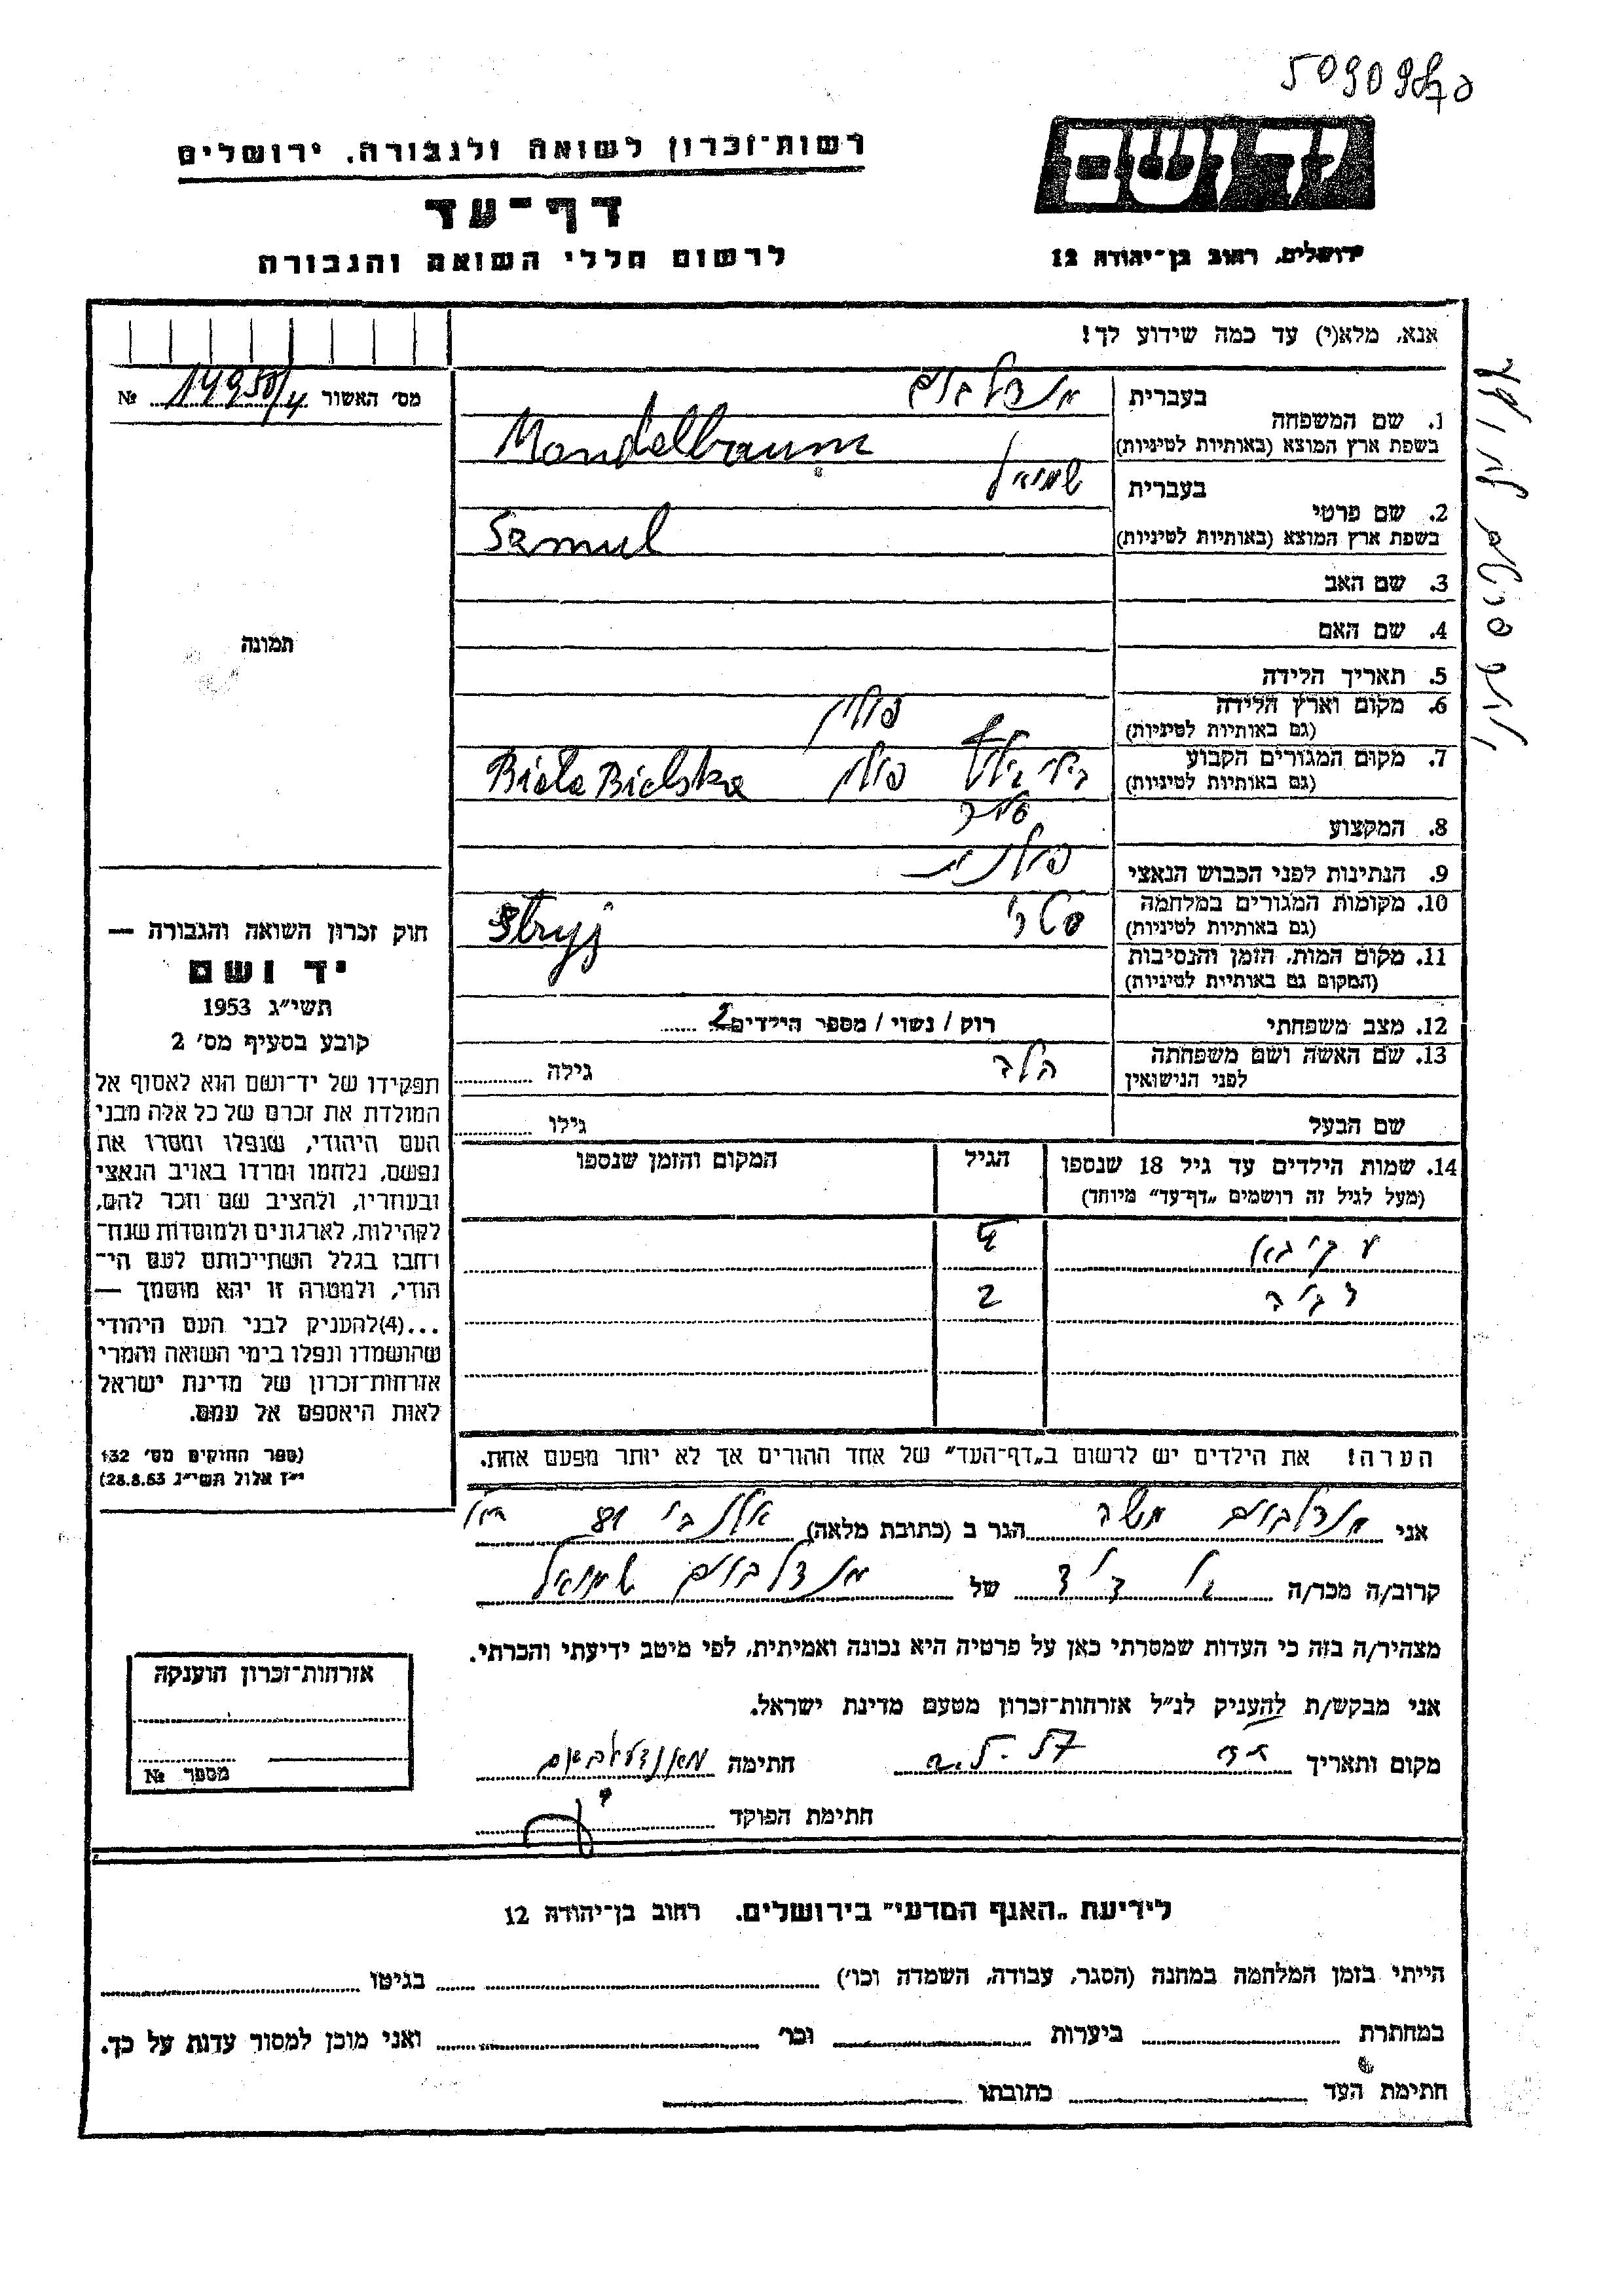 509098
יד ושם
רשות־זכרון לשואה ולגבורה, ירושלים
דף־עד
לרשום חללי השואה והגבורה
ירושלים, רחוב בן־יהודה 12
אנא, מלא(י) עד כמה שידוע לך!
מס׳ האשור 14950/4 №
1. שם המשפחה
בעברית מנדלבוים
בשפת ארץ המוצא (באותיות לטיניות) Mandelbaum
2. שם פרטי
בעברית שמואל
בשפת ארץ המוצא (באותיות לטיניות) Szmul
3. שם האב
4. שם האם
5. תאריך הלידה
6. מקום וארץ הלידה
(גם באותיות לטיניות) פולין
7. מקום המגורים הקבוע
(גם באותיות לטיניות) פולין Biała Bielska
8. המקצוע סוחר
9. הנתינות לפני הכבוש הנאצי פולנית
10. מקומות המגורים במלחמה
(גם באותיות לטיניות) סטרי Stryj
11. מקום המות, הזמן והנסיבות
(המקום גם באותיות לטיניות)
12. מצב משפחתי רוק / נשוי / מספר הילדים 2
13. שם האשה ושם משפחתה
לפני הנישואין הלה גילה
שם הבעל גילו
14. שמות הילדים עד גיל 18 שנספו הגיל המקום והזמן שנספו
(מעל לגיל זה רושמים „דף־עד” מיוחד)
4
2
הערה! את הילדים יש לרשום ב„דף־העד” של אחד ההורים אך לא יותר מפעם אחת.
תמונה
חוק זכרון השואה והגבורה —
יד ושם
תשי״ג 1953
קובע בסעיף מס׳ 2
תפקידו של יד־ושם הוא לאסוף אל
המולדת את זכרם של כל אלה מבני
העם היהודי, שנפלו ומסרו את
נפשם, נלחמו ומרדו באויב הנאצי
ובעוזריו, ולהציב שם וזכר להם,
לקהילות, לארגונים ולמוסדות שנח־
רחבו בגלל השתייכותם לעם הי־
הודי, ולמטרה זו יהא מוסמך —
...(4)להעניק לבני העם היהודי
שהושמדו ונפלו בימי השואה והמרי
אזרחות־זכרון של מדינת ישראל
לאות היאספם אל עמם.
(ספר החוקים מס׳ 132
י״ז אלול תשי״ג 28.8.53)
אני מנדלבוים משה הגר ב (כתובת מלאה) אלנבי
קרוב/ה מכר/ה בן דוד של מנדלבוים שמואל
מצהיר/ה בזה כי העדות שמסרתי כאן על פרטיה היא נכונה ואמיתית, לפי מיטב ידיעתי והכרתי.
אני מבקש/ת להעניק לנ״ל אזרחות־זכרון מטעם מדינת ישראל.
מקום ותאריך חתימה מאנדעלבוים
חתימת הפוקד
אזרחות־זכרון הוענקה
מספר №
לידיעת „האגף המדעי” בירושלים, רחוב בן־יהודה 12
הייתי בזמן המלחמה במחנה (הסגר, עבודה, השמדה וכו׳) בגיטו
במחתרת ביערות וכו׳ ואני מוכן למסור עדות על כך.
חתימת העד כתובתו